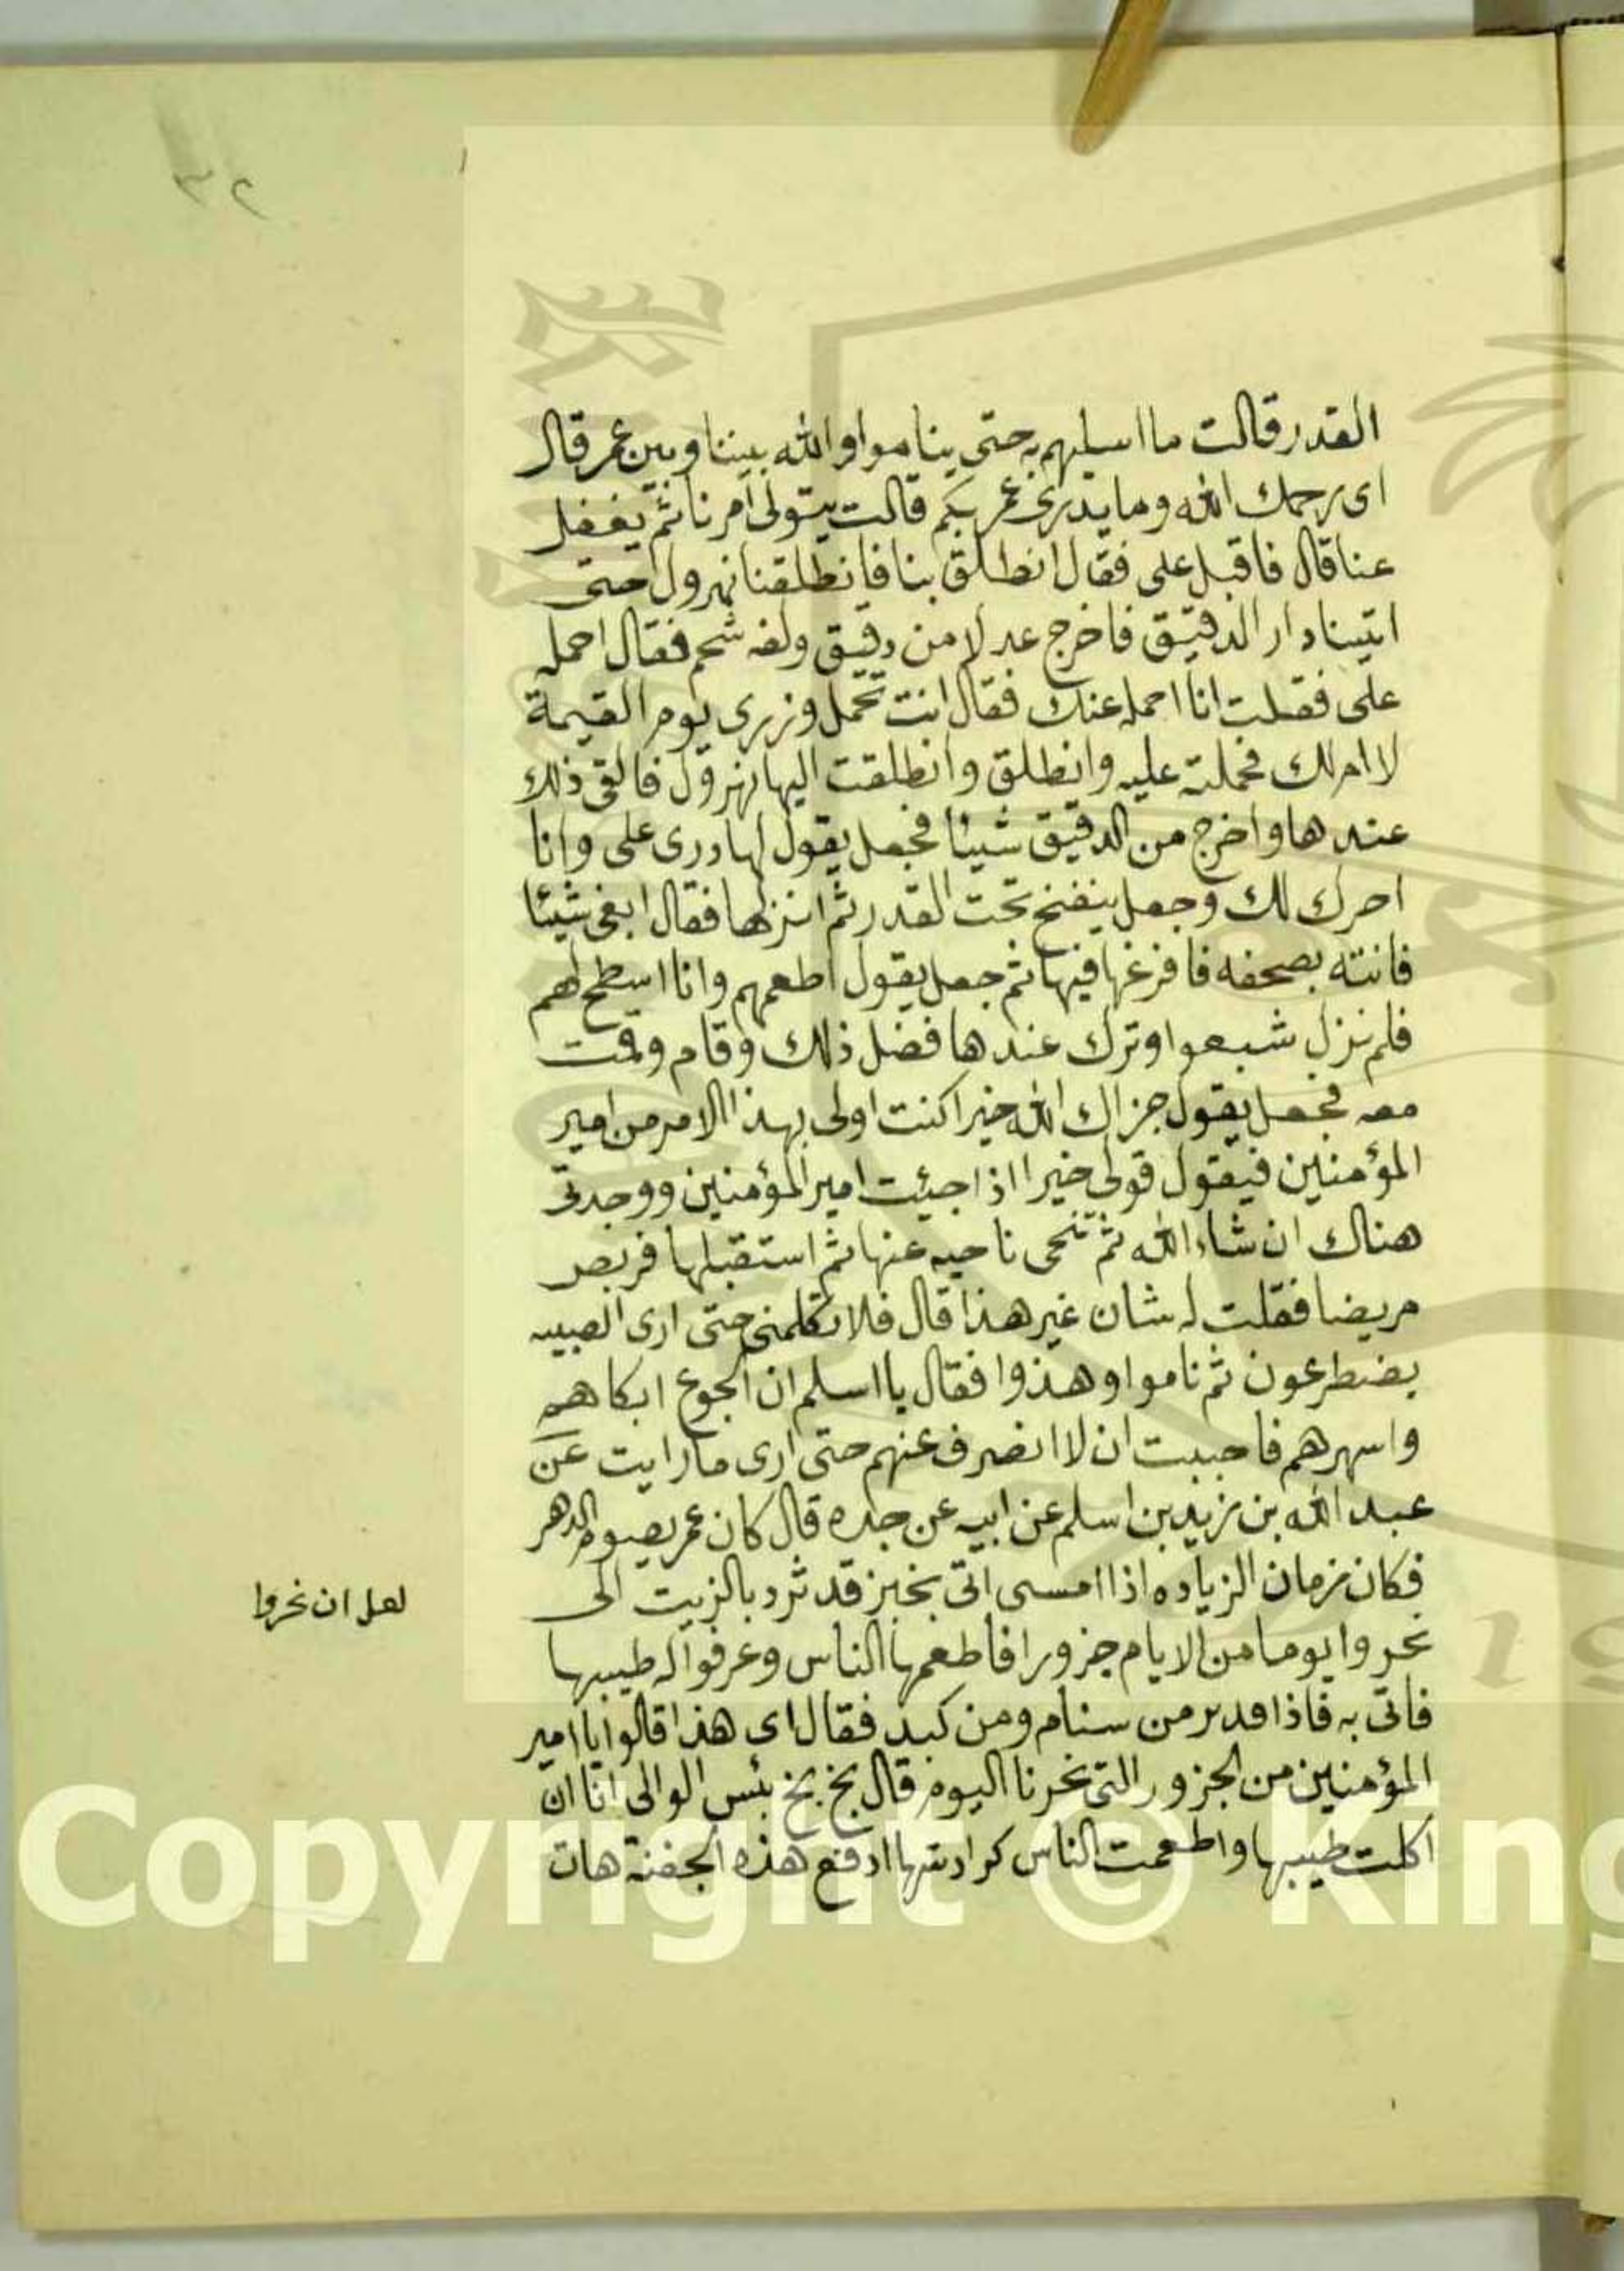 ٣٢
القدر قالت ما اسليهم به حتى يناموا والله بيننا وبين عمر قال
اى رحمك الله وما يدرى عمر بكم قالت يتولى امرنا ثم يغفل
عنا قال فاقبل على فقال انطلق بنا فانطلقنا نهرول حتى
اتينا دار الدقيق فاخرج عدلا من دقيق ولفه شحم فقال احمله
على فقلت انا احمله عنك فقال انت تحمل وزرى يوم القيمة
لا ام لك فحملته عليه وانطلق وانطلقت اليها نهرول فالقى ذلك
عندها واخرج من الدقيق شيئا فجعل يقول لها درى على وانا
احرك لك وجعل ينفخ تحت القدر ثم انزلها فقال ابغى شيئا
فاتته بصحفه فافرغها فيها ثم جعل يقول اطعمهم وانا اسطح لهم
فلم نزل شبعوا وترك عندها فضل ذلك وقام وقمت
معه فجعل يقول جزاك الله خيرا كنت اولى بهذا الامر من امير
المؤمنين فيقول قولى خيرا اذا جيئت امير المؤمنين ووجدتى
هناك ان شاء الله ثم تنحى ناحيه عنها ثم استقبلها فربص
مريضا فقلت له شان غير هذا قال فلا تكلمنى حتى ارى الصبيه
يضطرعون ثم ناموا وهذوا فقال يا اسلم ان الجوع ابكاهم
واسهرهم فاحببت ان لا انصرف عنهم حتى ارى ما رايت عن
عبد الله بن زيد بن اسلم عن ابيه عن جده قال كان عمر يصوم الدهر
فكان زمان الزياده اذا امسى اتى بخبز قد ثرد بالزيت الى
نحروا يوما من الايام جزورا فاطعمها الناس وغرفوا له طيبها
فاتى به فاذا قدر من سنام ومن كبد فقال اى هذا قالوا يا امير
المؤمنين من الجزور التى نحرنا اليوم قال بخ بخ بئس الوالى انا ان
اكلت طيبها واطعمت الناس كراديسها ارفع هذه الجفنة هات
لعل ان نحروا
Copyright © King